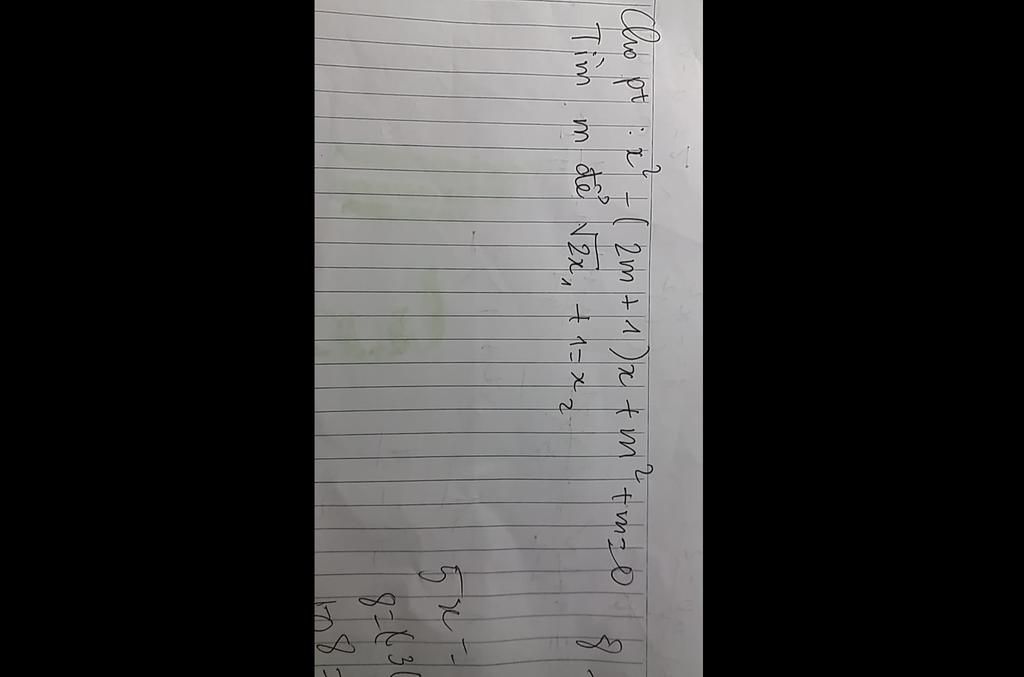 Cho pt : x² - (2m + 1)x + m² + m = 0
Tìm m để √2x₁ + 1 = x₂
5x -
8 -